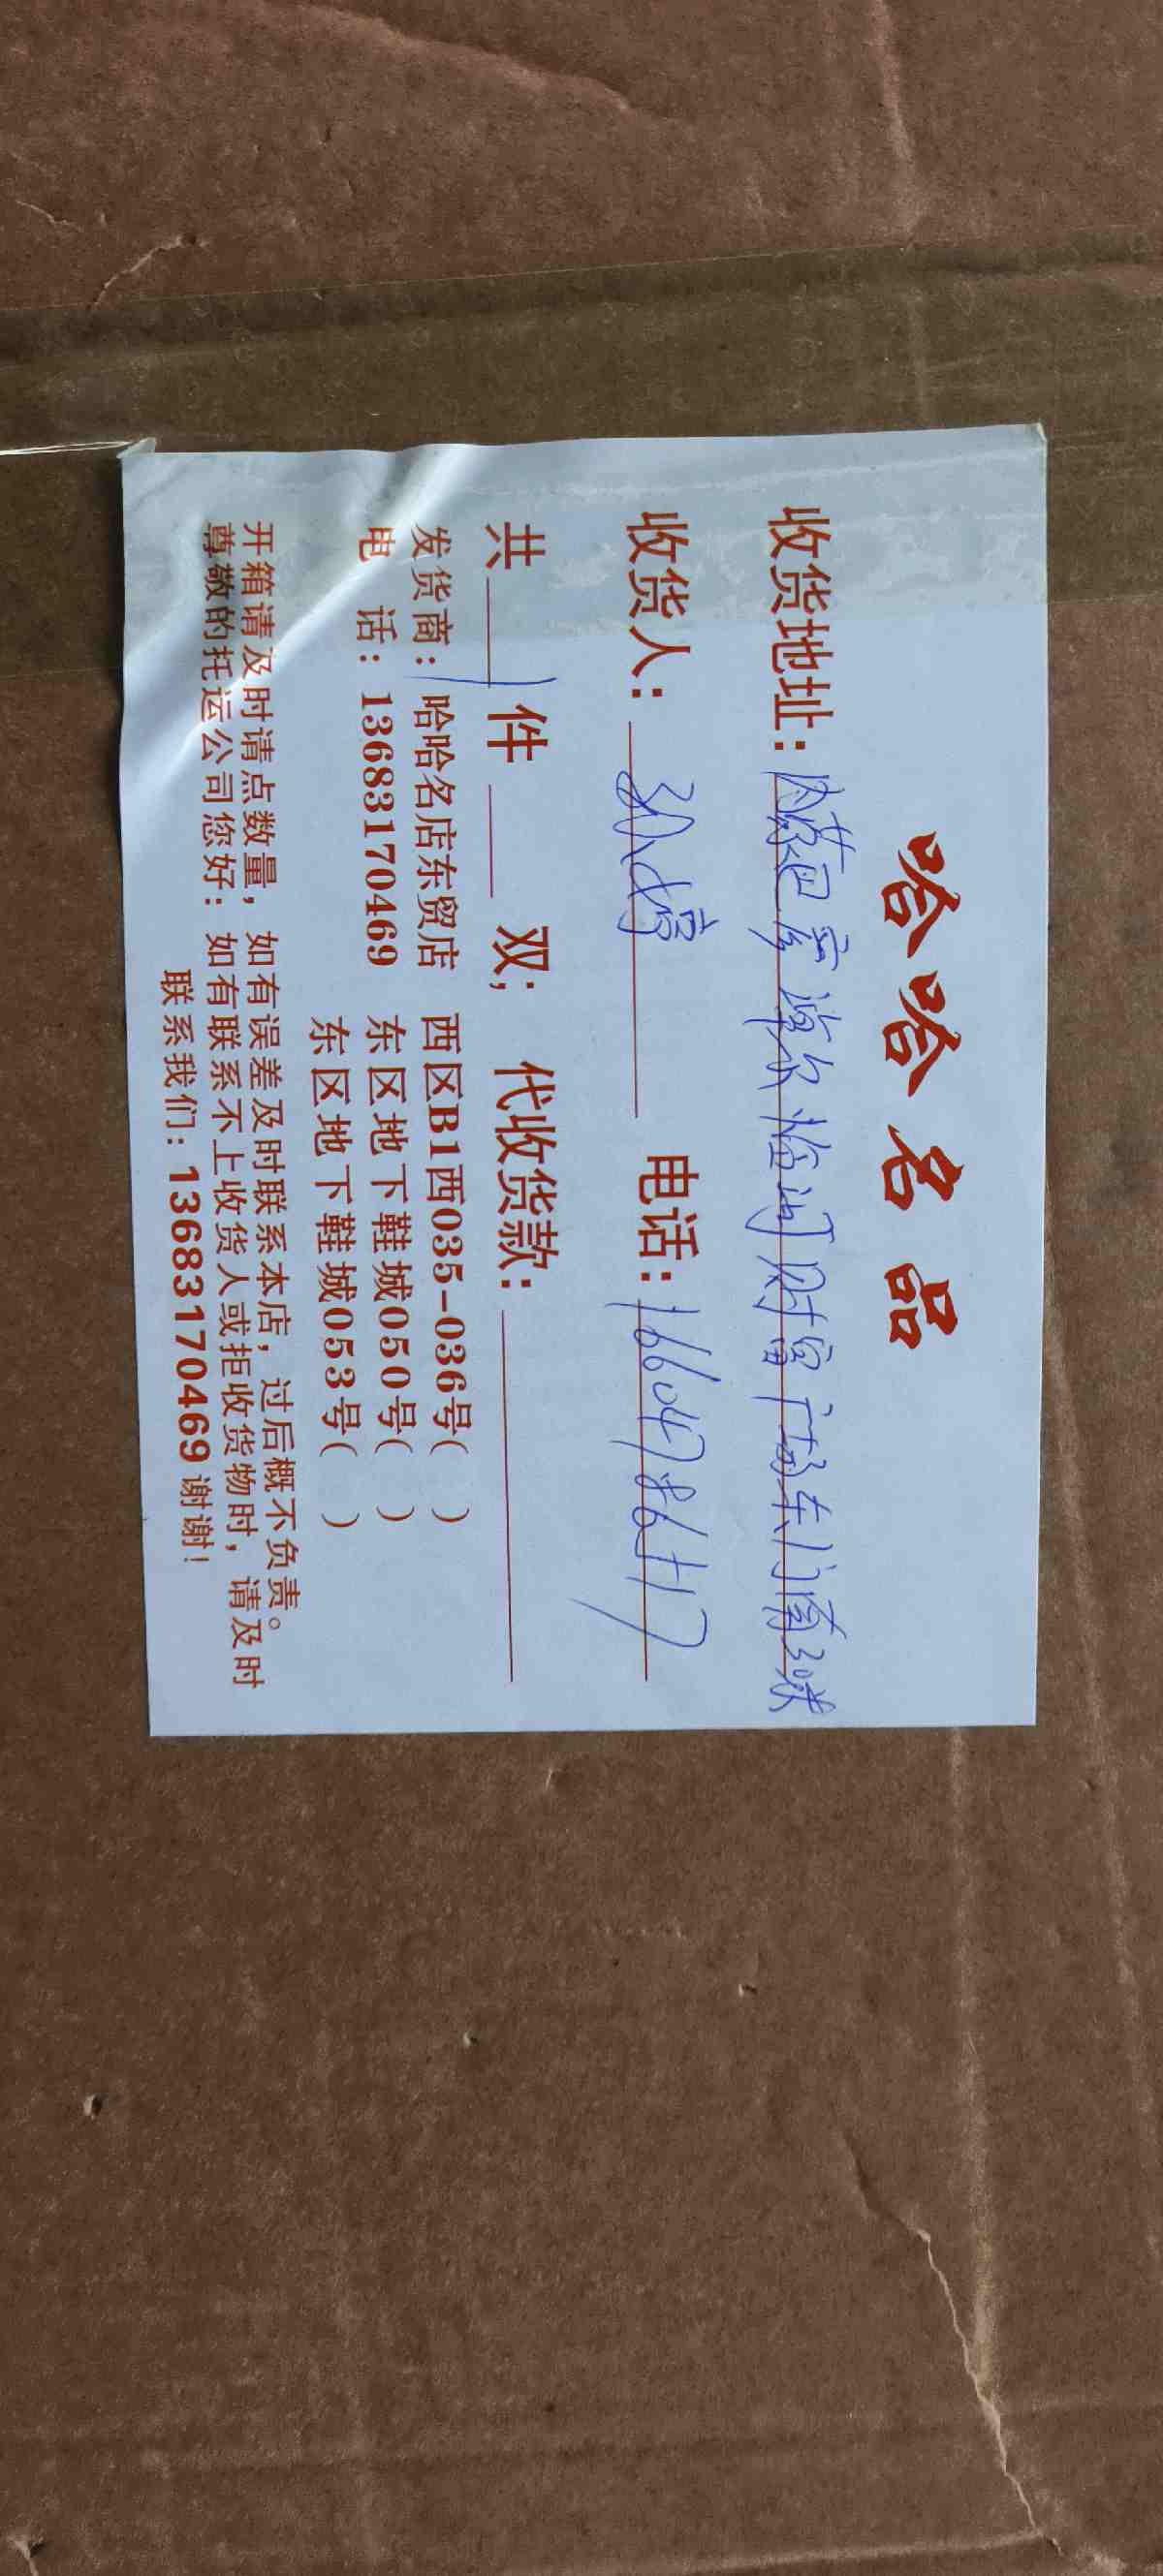 哈哈名品
收货地址：内蒙巴彦淖尔临河财富广场东门南
收货人：孙婷 电话：16604786117
共 1 件 双； 代收货款：
发货商：哈哈名店东贸店 西区B1西035-036号（ ）
电 话：13683170469 东区地下鞋城050号（ ）
东区地下鞋城053号（ ）
开箱请及时请点数量，如有误差及时联系本店，过后概不负责。
尊敬的托运公司您好：如有联系不上收货人或拒收货物时，请及时
联系我们：13683170469谢谢！